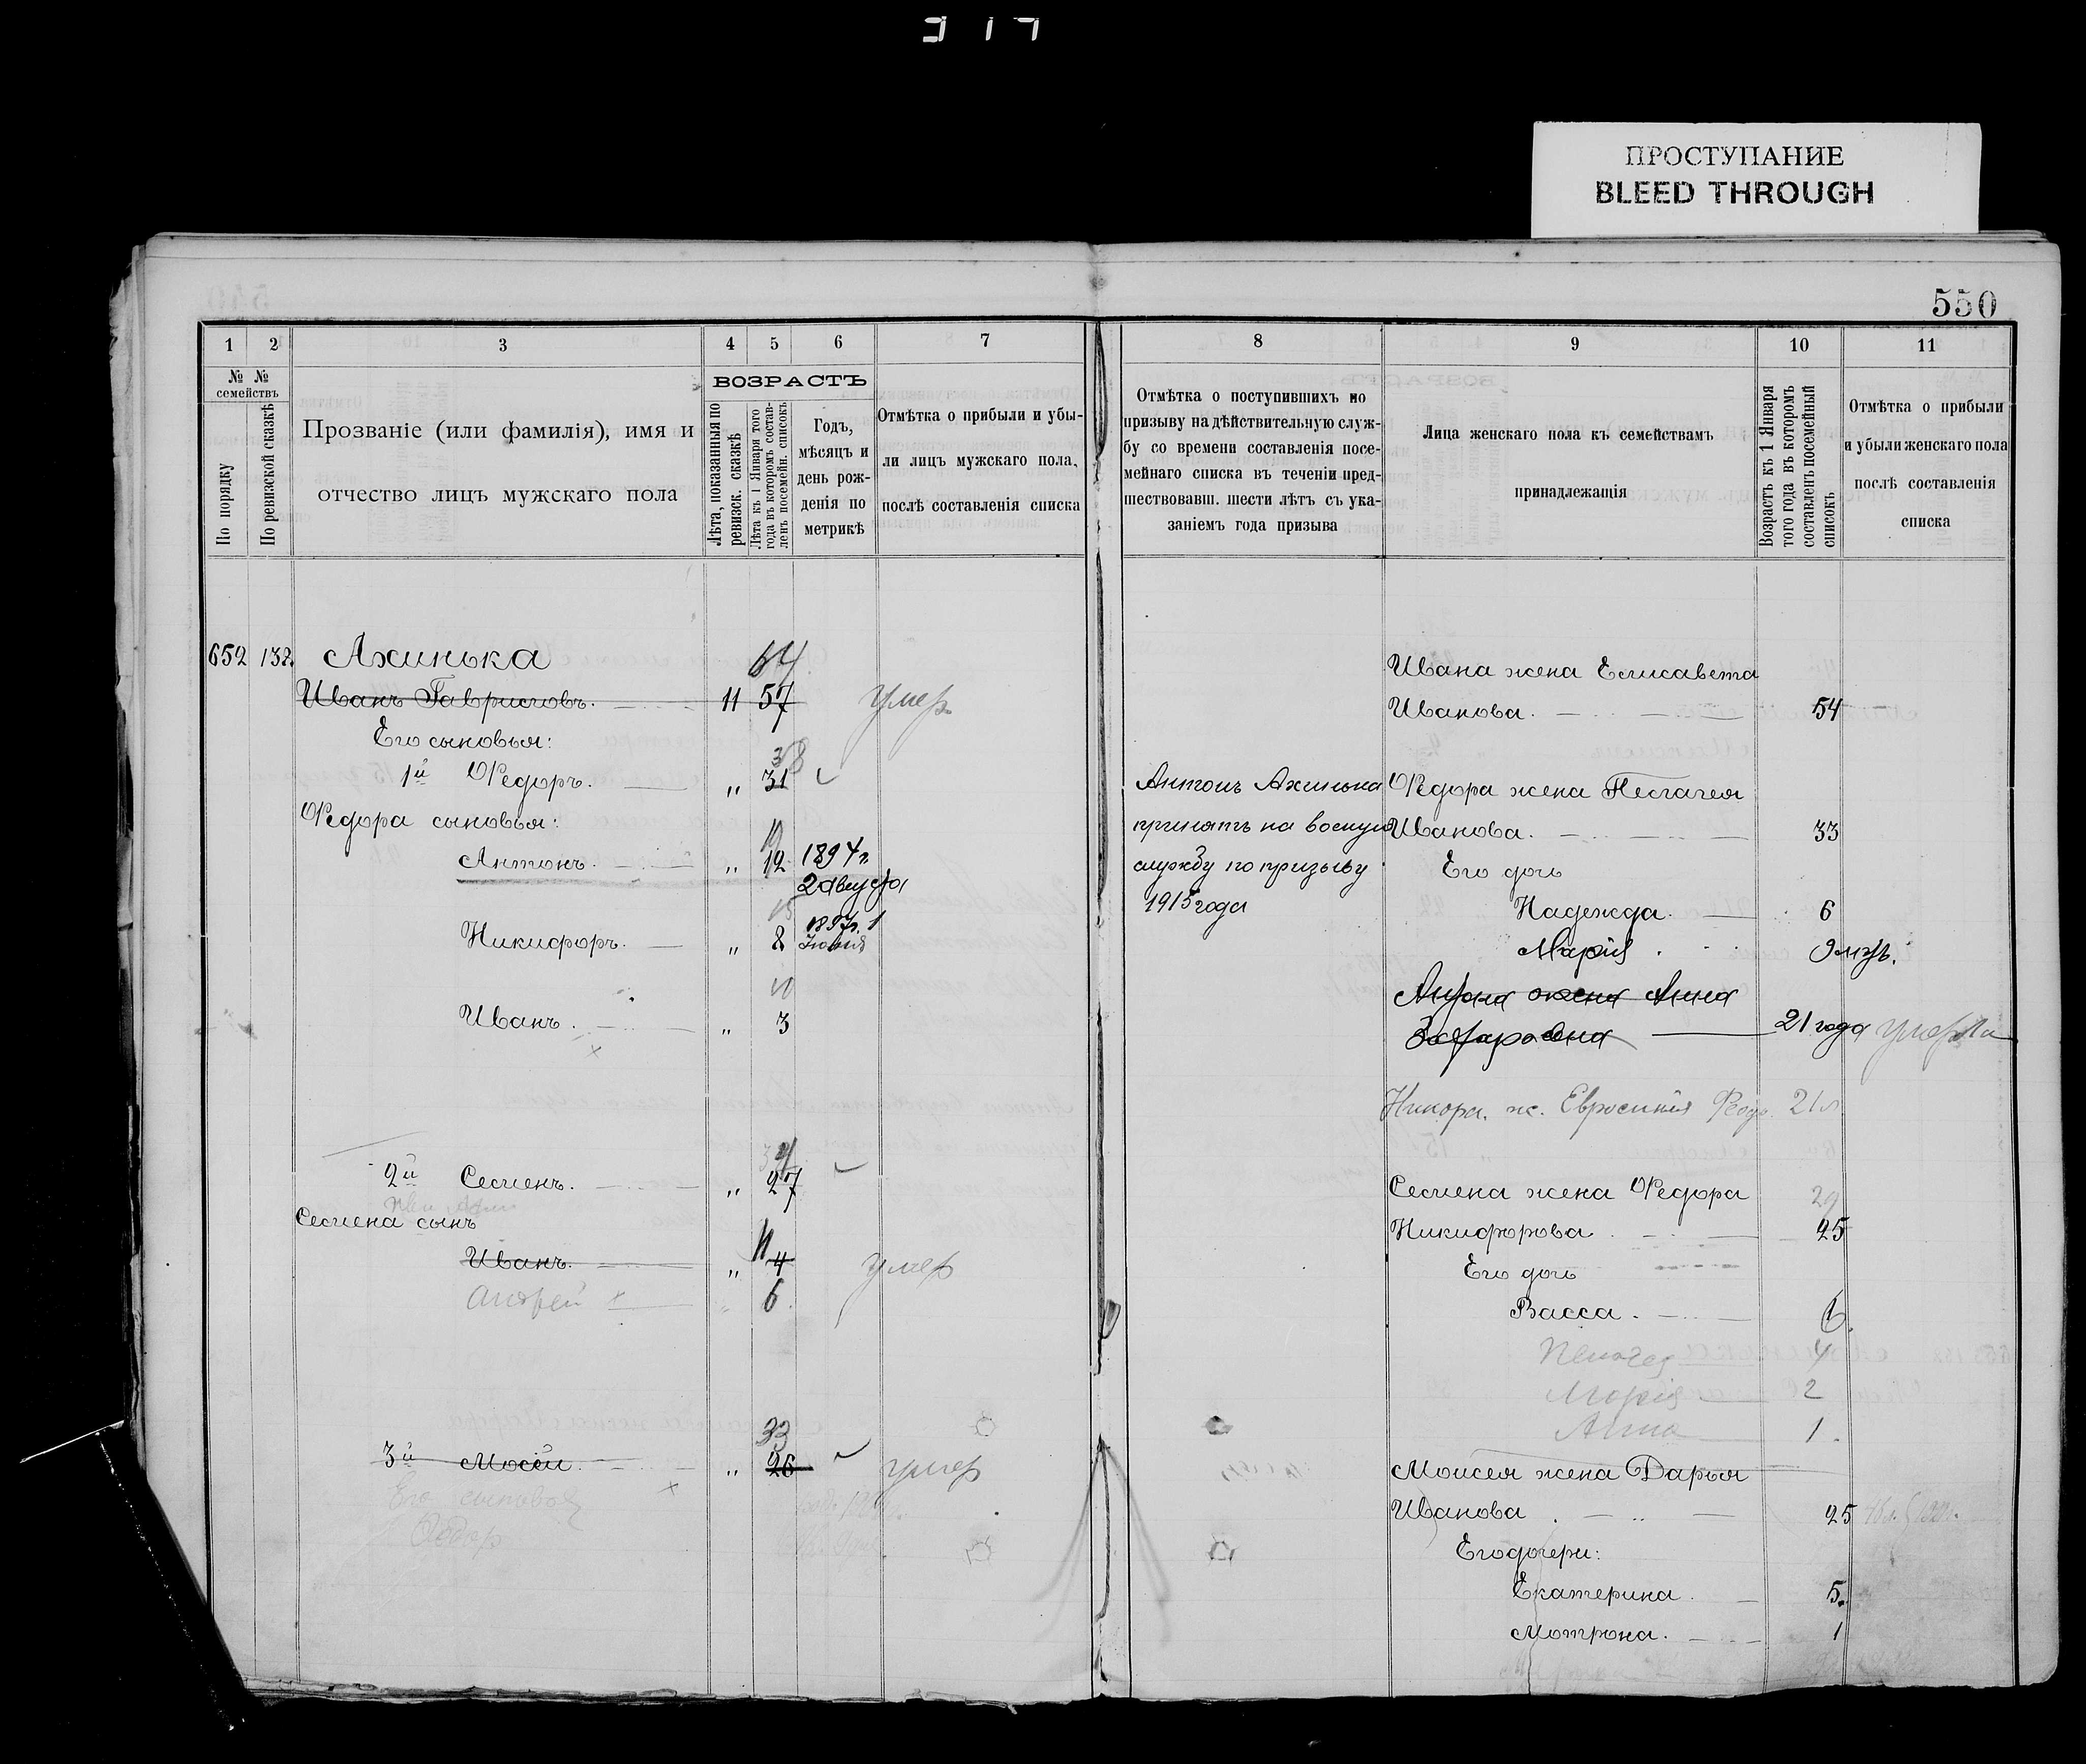 ПРОСТУПАНИЕ
BLEED THROUGH
550
1 2 3 4 5 6 7
№ № семействъ
По порядку
По ревизской сказкѣ
Прозваніе (или фамилія), имя и
отчество лицъ мужскаго пола
ВОЗРАСТЪ
Лѣта, показанныя по
ревизск. сказкѣ
Лѣта къ 1 Января того
года въ которомъ состав-
ленъ посемейн. списокъ
Годъ,
мѣсяцъ и
день рож-
денія по
метрикѣ
Отмѣтка о прибыли и убы-
ли лицъ мужскаго пола,
послѣ составленія списка
652 132 Ахинька 64
Иванъ Гавриловъ. 11 57 умер
Его сыновья:
38
1й Ѳедоръ. „ 31
Ѳедора сыновья:
19
Антонъ. „ 12 1894 г.
2 августа
15
1897г. 1
Никифоръ. „ 8 Іюня
10
Иванъ. „ 3
34
2й Семенъ. „ 27
Семена сынъ
11
Иванъ. „ 4 умер
Андрей „ 6
33
3й Мосѣй. „ 26 умер
Его сыновья
Ѳедор
8 9 10 11
Отмѣтка о поступившихъ по
призыву на дѣйствительную служ-
бу со времени составленія посе-
мейнаго списка въ теченіи пред-
шествовавш. шести лѣтъ съ ука-
заніемъ года призыва
Лица женскаго пола къ семействамъ
принадлежащія
Возрастъ къ 1 Января
того года въ которомъ
составленъ посемейный
списокъ
Отмѣтка о прибыли
и убыли женскаго пола
послѣ составленія
списка
Ивана жена Елисавета
Иванова. 54
Антонъ Ахинька
принятъ на военную
службу по призыву
1915 года
Ѳедора жена Пелагея
Иванова. 33
Его дочь
Надежда. 6
Марія. 9 мѣ.
Антона жена Анна
Захаровна 21 года умерла
Никфора. ж. Евросинія Ѳедо. 21 л
Семена жена Ѳедора 29
Никифорова 25
Его дочь
Васса. 6.
Пелагея 4
Марія 2
Анна 1.
Моисея жена Дарья
Иванова 25
Его дочери:
Екатерина 5.
Мотрона. 1